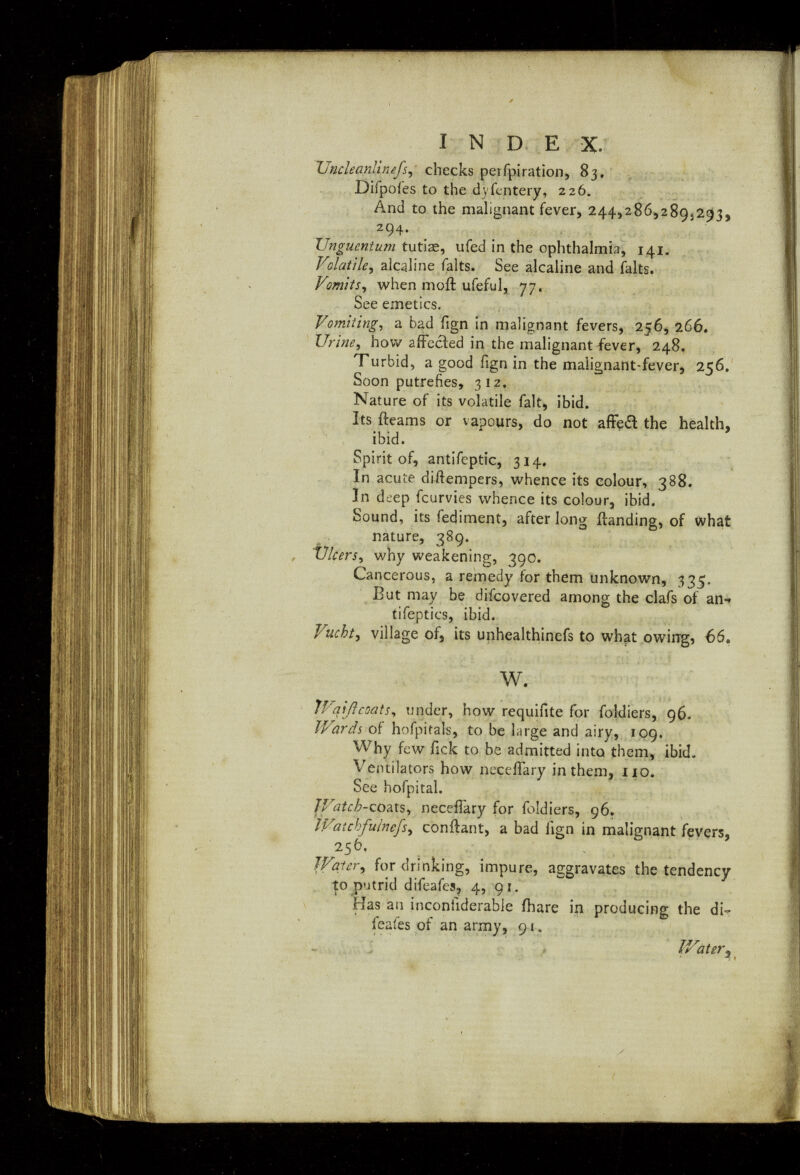 I N D E X.
Uncleanlineſs, checks perſpiration, 83.
Diſpoſes to the dyſentery, 226.
And to the malignant fever, 244,286,289,293,
294.
Unguentum tutiæ, uſed in the ophthalmia, 141.
Volatile, alcaline ſalts. See alcaline and ſalts.
Vomits, when moſt uſeful, 77.
See emetics.
Vomiting, a bad ſign in malignant fevers, 256, 266.
Urine, how affected in the malignant fever, 248.
Turbid, a good ſign in the malignant-fever, 256.
Soon putrefies, 312.
Nature of its volatile ſalt, ibid.
Its ſteams or vapours, do not affect the health,
ibid.
Spirit of, antiſeptic, 314.
In acute diſtempers, whence its colour, 388.
In deep ſcurvies whence its colour, ibid.
Sound, its ſediment, after long ſtanding, of what
nature, 389.
Ulcers, why weakening, 390.
Cancerous, a remedy for them unknown, 335.
But may be diſcovered among the claſs of an-
tiſeptics, ibid.
Vucht, village of, its unhealthineſs to what owing, 66.
W.
Waiſtcoats, under, how requiſite for ſoldiers, 96.
Wards of hoſpitals, to be large and airy, 109.
Why few ſick to be admitted into them, ibid.
Ventilators how neceſſary in them, 110.
See hoſpital.
Watch-coats, neceſſary for ſoldiers, 96.
Watchfulneſs, conſtant, a bad ſign in malignant fevers,
256.
Water, for drinking, impure, aggravates the tendency
to putrid diſeaſes, 4, 91.
Has an inconſiderable ſhare in producing the di-
ſeaſes of an army, 91.
Water,